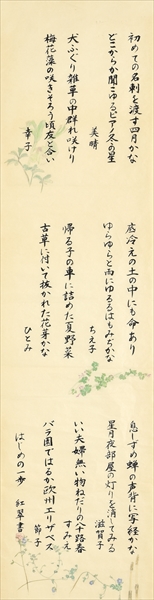 初めての名刺を渡す四月かな
どこからか聞こゆるピアノ冬の星
美晴
犬ふぐり雑草の中群れ咲けり
梅花藻の咲きそろう頃友と会い
幸子
底冷えの土の中にも命あり
ゆらゆらと雨にゆるるはもみぢかな
ちえ子
帰る子の車に詰めた夏野菜
古草に付いて抜かれた花芽かな
ひとみ
息しずめ蝉の声背に写経かな
星月夜部屋の灯りを消してみる
滋賀子
いい夫婦無い物ねだりの八十路春
すみえ
バラ園ではるか欧州エリザベス
節子
はじめの一歩 紅翠書